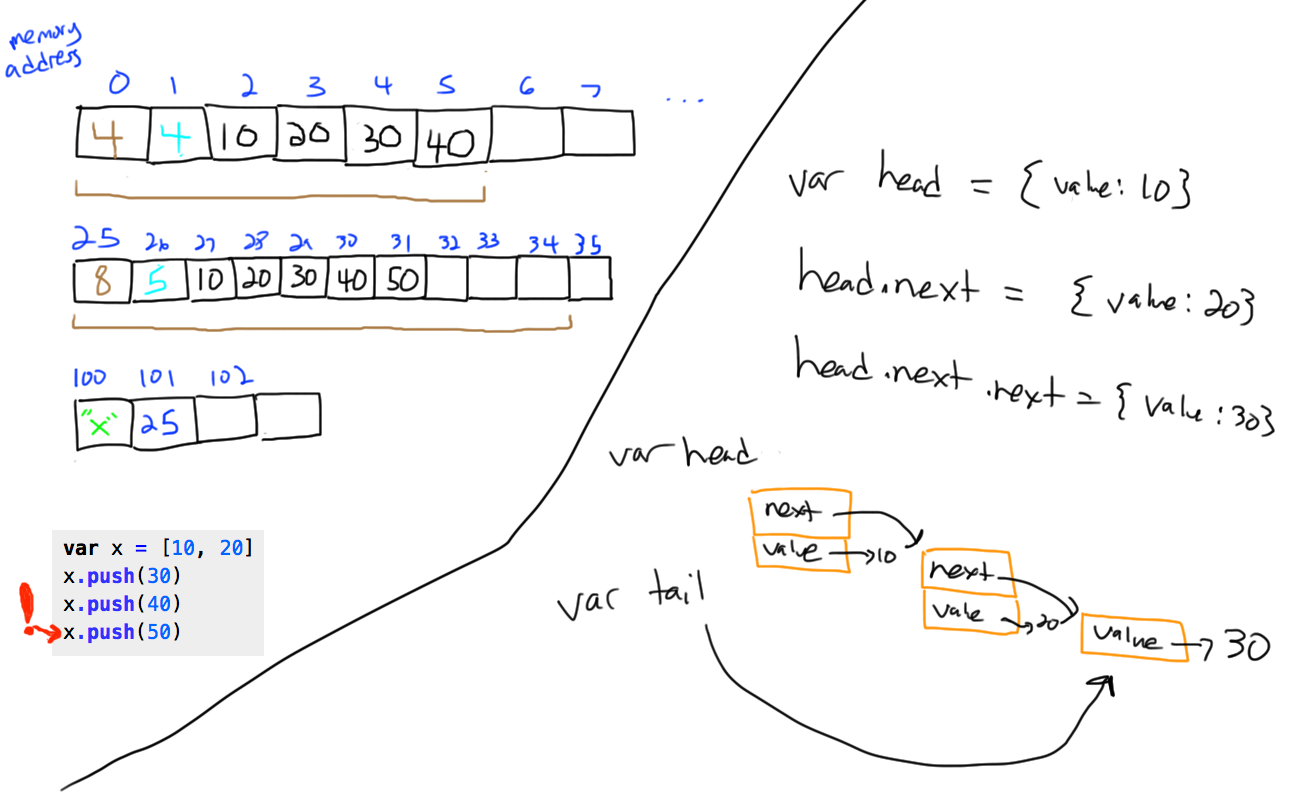 memory
address
0 1 2 3 4 5 6 7 ...
4 4 10 20 30 40
25 26 27 28 29 30 31 32 33 34 35
8 5 10 20 30 40 50
100 101 102
"x" 25
var x = [10, 20]
x.push(30)
x.push(40)
! x.push(50)
var head = { value: 10}
head.next = { value: 20}
head.next.next = { value: 30}
var head
next
value 10
next
value 20
value 30
var tail